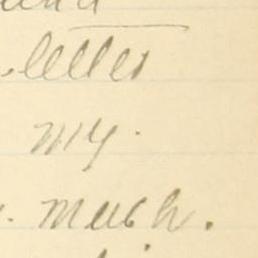 letter
my.
much.